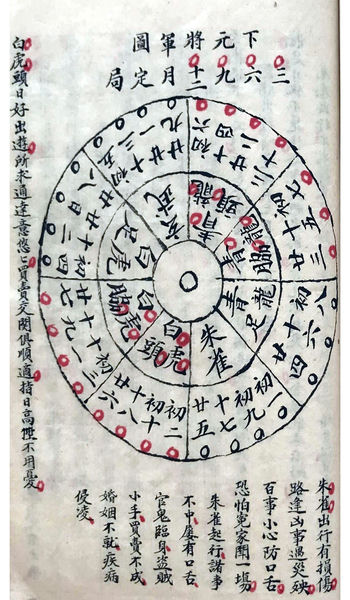 下元將軍圖
三六九十二月定局
朱雀
初一
初九
十七
廿五
白虎頭
初二
初十
十八
廿六
白虎脇
初三
十一
十九
廿七
白虎足
初四
十二
二十
廿八
玄武
初五
十三
廿一
廿九
青龍頭
初六
十四
廿二
三十
青龍脇
初七
十五
廿三
青龍足
初八
十六
廿四
朱雀出行有損傷
路逢凶事遇災殃
百事小心防口舌
恐怕冤家鬧一場
朱雀起行諸事
不中屢有口舌
官鬼臨身盜賊
小手買賣不成
婚姻不就疾病
侵凌
白虎頭日好出遊所求通達意悠〻買賣交関俱順適指日高陞不用憂